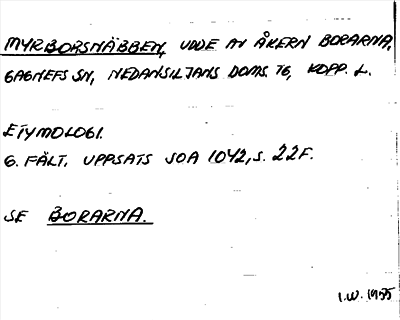 MYRBORSNÄBBEN, UDDE AV ÅKERN BORARNA,
GAGNEFS SN, NEDANSILJANS DOMS. TG, KOPP. L.
ETYMOLOGI.
G. FÄLT, UPPSATS SOA 1042, S. 22F.
SE BORARNA.
I.W. 1955